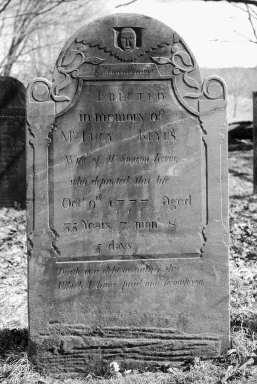 Erected
in memory of
Mrs. Lucy Keyes
Wife of Mr. Simeon Keyes
who departed this life
Octr. 9th. 1777. Aged
55 Years, 7 mons. &
5 days.
Death is a debt to nature due
Which I have paid and so must you